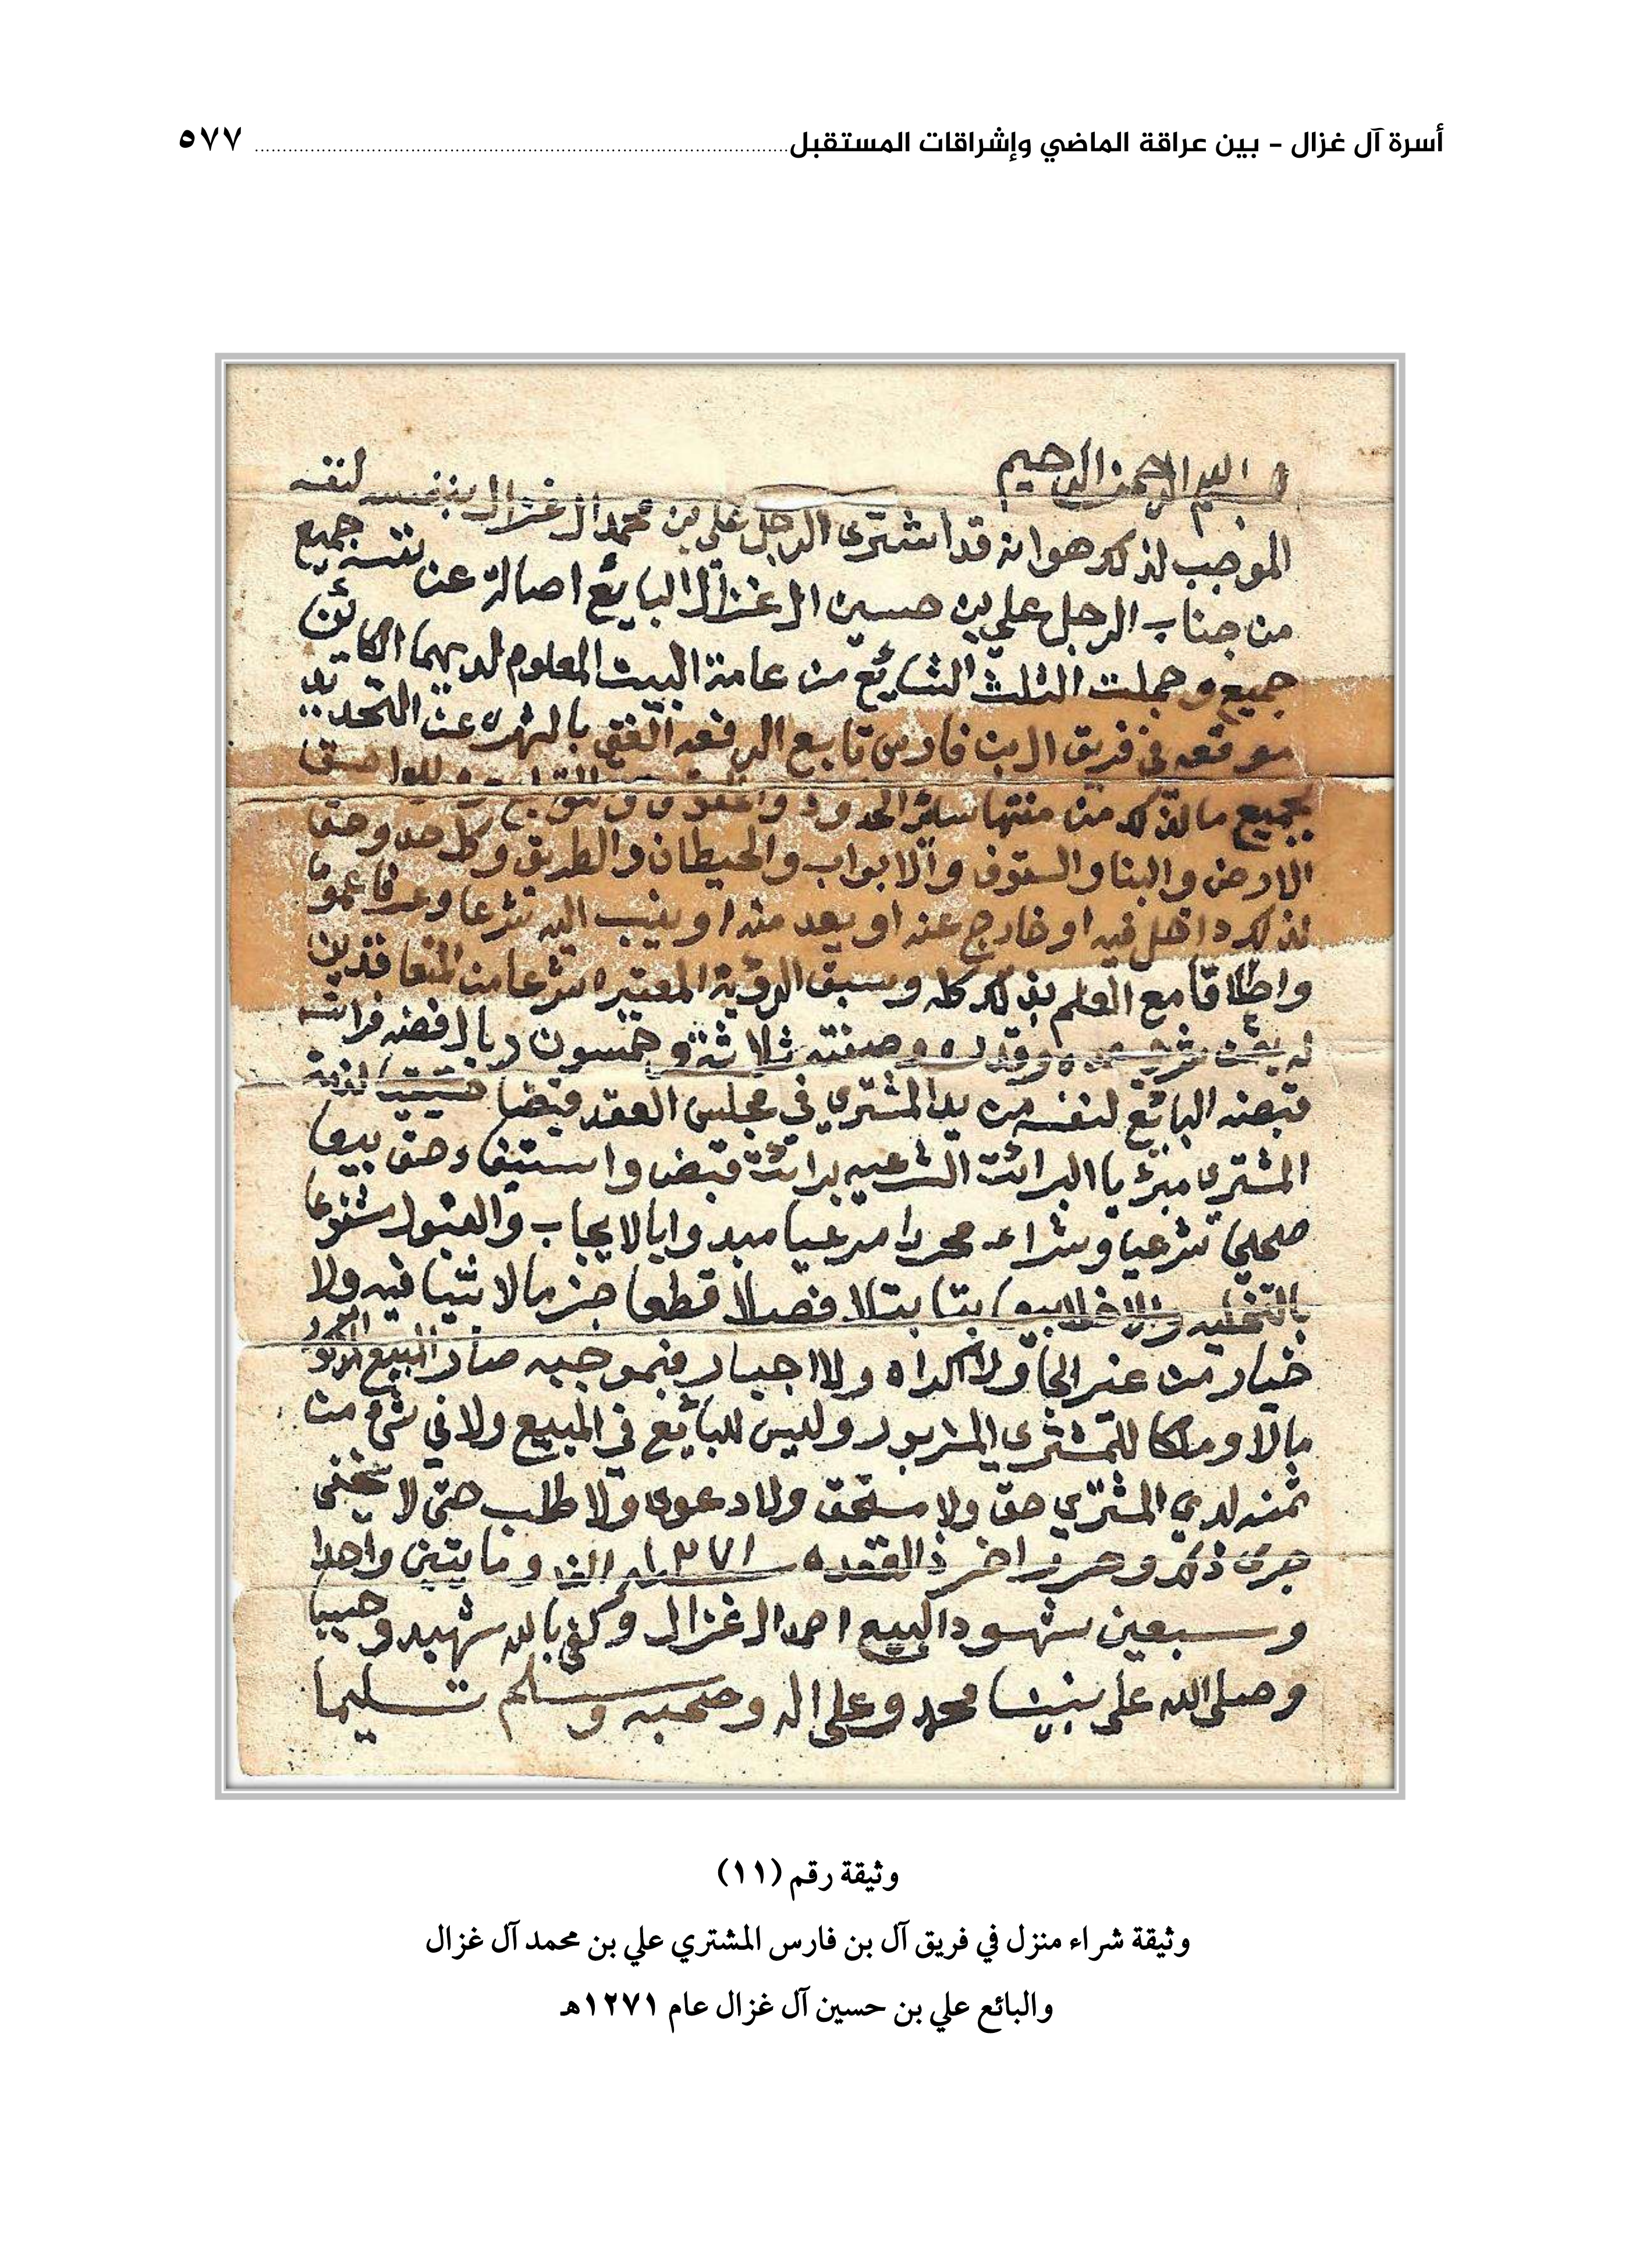 أسرة آل غزال - بين عراقة الماضي وإشراقات المستقبل ٥٧٧
بسم الله الرحمن الرحيم
الموجب لذكر هو انه قد اشترى الرجل علي بن محمد ال غزال بنفسه لنفسه
من جناب الرجل علي بن حسين ال غزال البايع اصالة عن نفسه جميع
جميع وجملت الثلث الشايع من عامة البيت المعلوم لديهما الكاين
موقعه في فريق ال بن فارس تابع الرفعه الغني بالشهره عن التحديد
بجميع ما لذكر من منتها ساير الحدود والحقوق والتوابع واللواحق
الارض والبنا والسقوف والابواب والحيطان والطريق وكل حد وحق
لذكر داخل فيه او خارج عنه او يعد منه او ينسب اليه شرعا وعرفا عموما
واطلاقا مع العلم بذلك كله وسبق الرؤية المعتبره شرعا من المتعاقدين
له بثمن وقدره ثلاثة وخمسون ريال فضه فرانسه
قبضه البائع لنفسه من يد المشتري في مجلس العقد قبضا
المشتري مبرئا البرائت الشرعيه برائت قبض واستيفاء حق بيعا
صحيحا شرعيا وشراء محررا مرعيا مبدوا بالايجاب والقبول
بالتخليه بيعا بتا بتلا فصلا قطعا جزما لا ثنيا فيه ولا
خيار من غير الجا ولا اكراه ولا اجبار فبموجبه صار المبيع المذكور
مالا وملكا للمشتري المزبور وليس للبايع في المبيع ولا في شيء من
ثمنه لدى المشتري حق ولا مستحق ولا دعوى ولا طلب حتى لا يخفى
جرى ذكر وحرر اخر ذالقعده سنه ١٢٧١ الف ومايتين واحدا
وسبعين شهود البيع احمد ال غزال وكفى بالله شهيد وحسيبا
وصلى الله على نبينا محمد وعلى اله وصحبه وسلم تسليما
وثيقة رقم (١١)
وثيقة شراء منزل في فريق آل بن فارس المشتري علي بن محمد آل غزال
والبائع علي بن حسين آل غزال عام ١٢٧١هـ